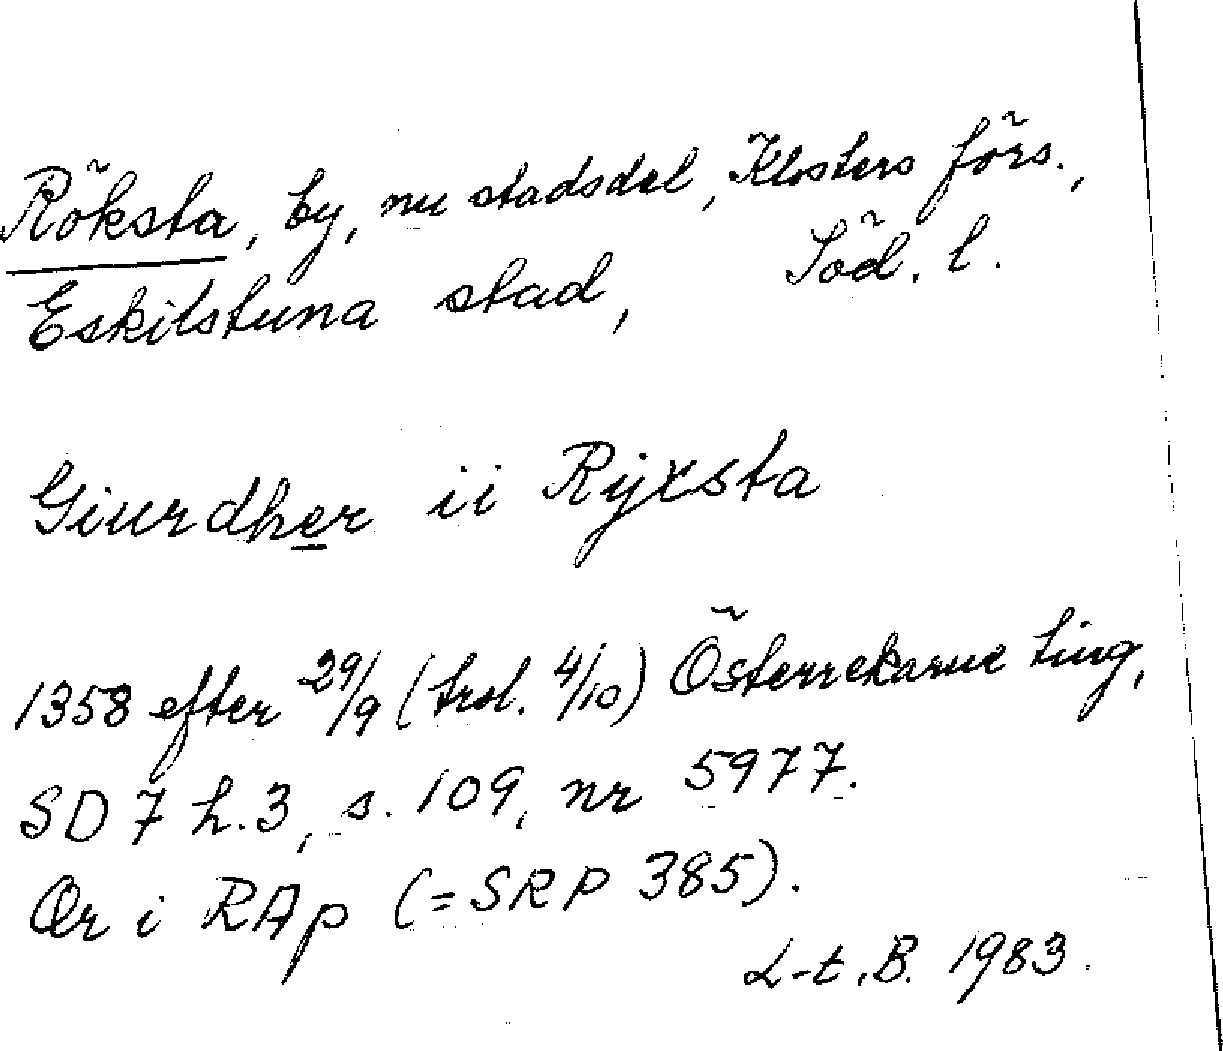 Röksta, by, nu stadsdel, Klosters förs.,
Eskilstuna stad, Söd. l.
Giurdher ii Ryxsta
1358 efter 29/9 (trol. 4/10) Österrekarne ting,
SD 7 h.3, s. 109, nr 5977.
Or i RAp (=SRP 385).
L-t. B. 1983.